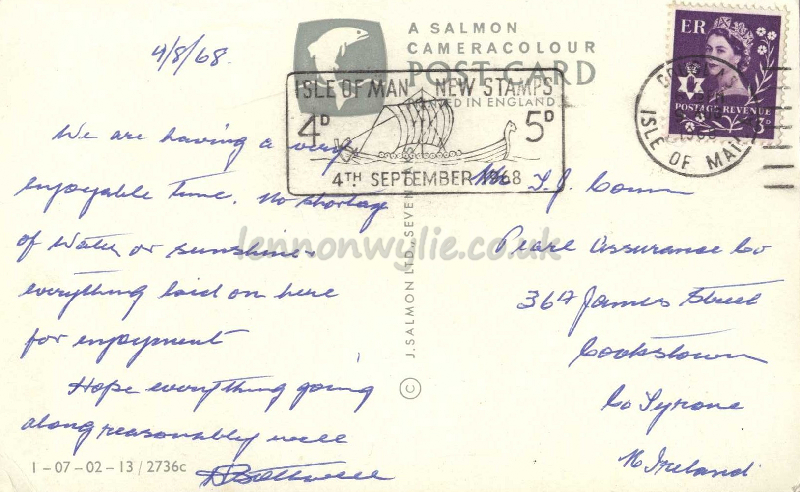 4/8/68.
A SALMON
CAMERACOLOUR
POST CARD
ED IN ENGLAND
ISLE OF MAN NEW STAMPS
4D 5D
4TH SEPTEMBER 1968
ER
POSTAGE REVENUE
3D
ISLE OF MAN
We are having a very
enjoyable time. No shortage
of water or sunshine -
everything laid on here
for enjoyment
Hope everything going
along reasonably well
T. J.
Pearl Assurance Co
James Street
Cookstown
Co Tyrone
N Ireland
© J. SALMON LTD., SEVEN
lennonwylie.co.uk
1-07-02-13/2736c